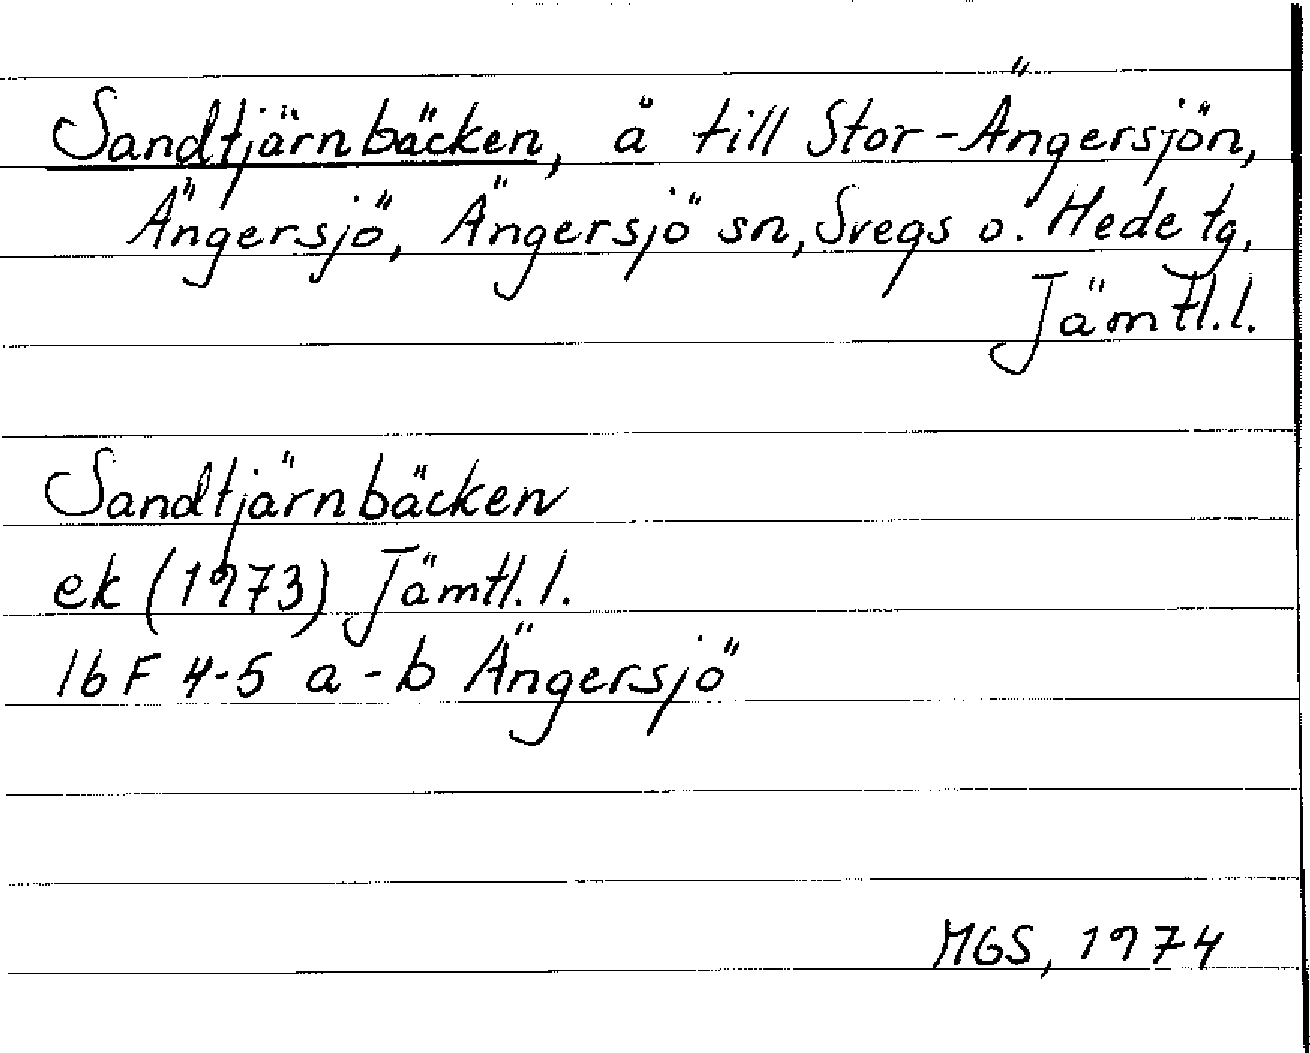 Sandtjärnbäcken, å till Stor-Ängersjön,
Ängersjö, Ängersjö sn, Svegs o. Hede tg,
Jämtl.l.
Sandtjärnbäcken
ek (1973) Jämtl.l.
16 F 4-5 a-b Ängersjö
MGS, 1974